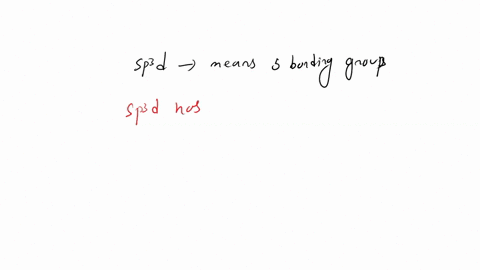 sp3d → means 5 bonding groups
sp3d has